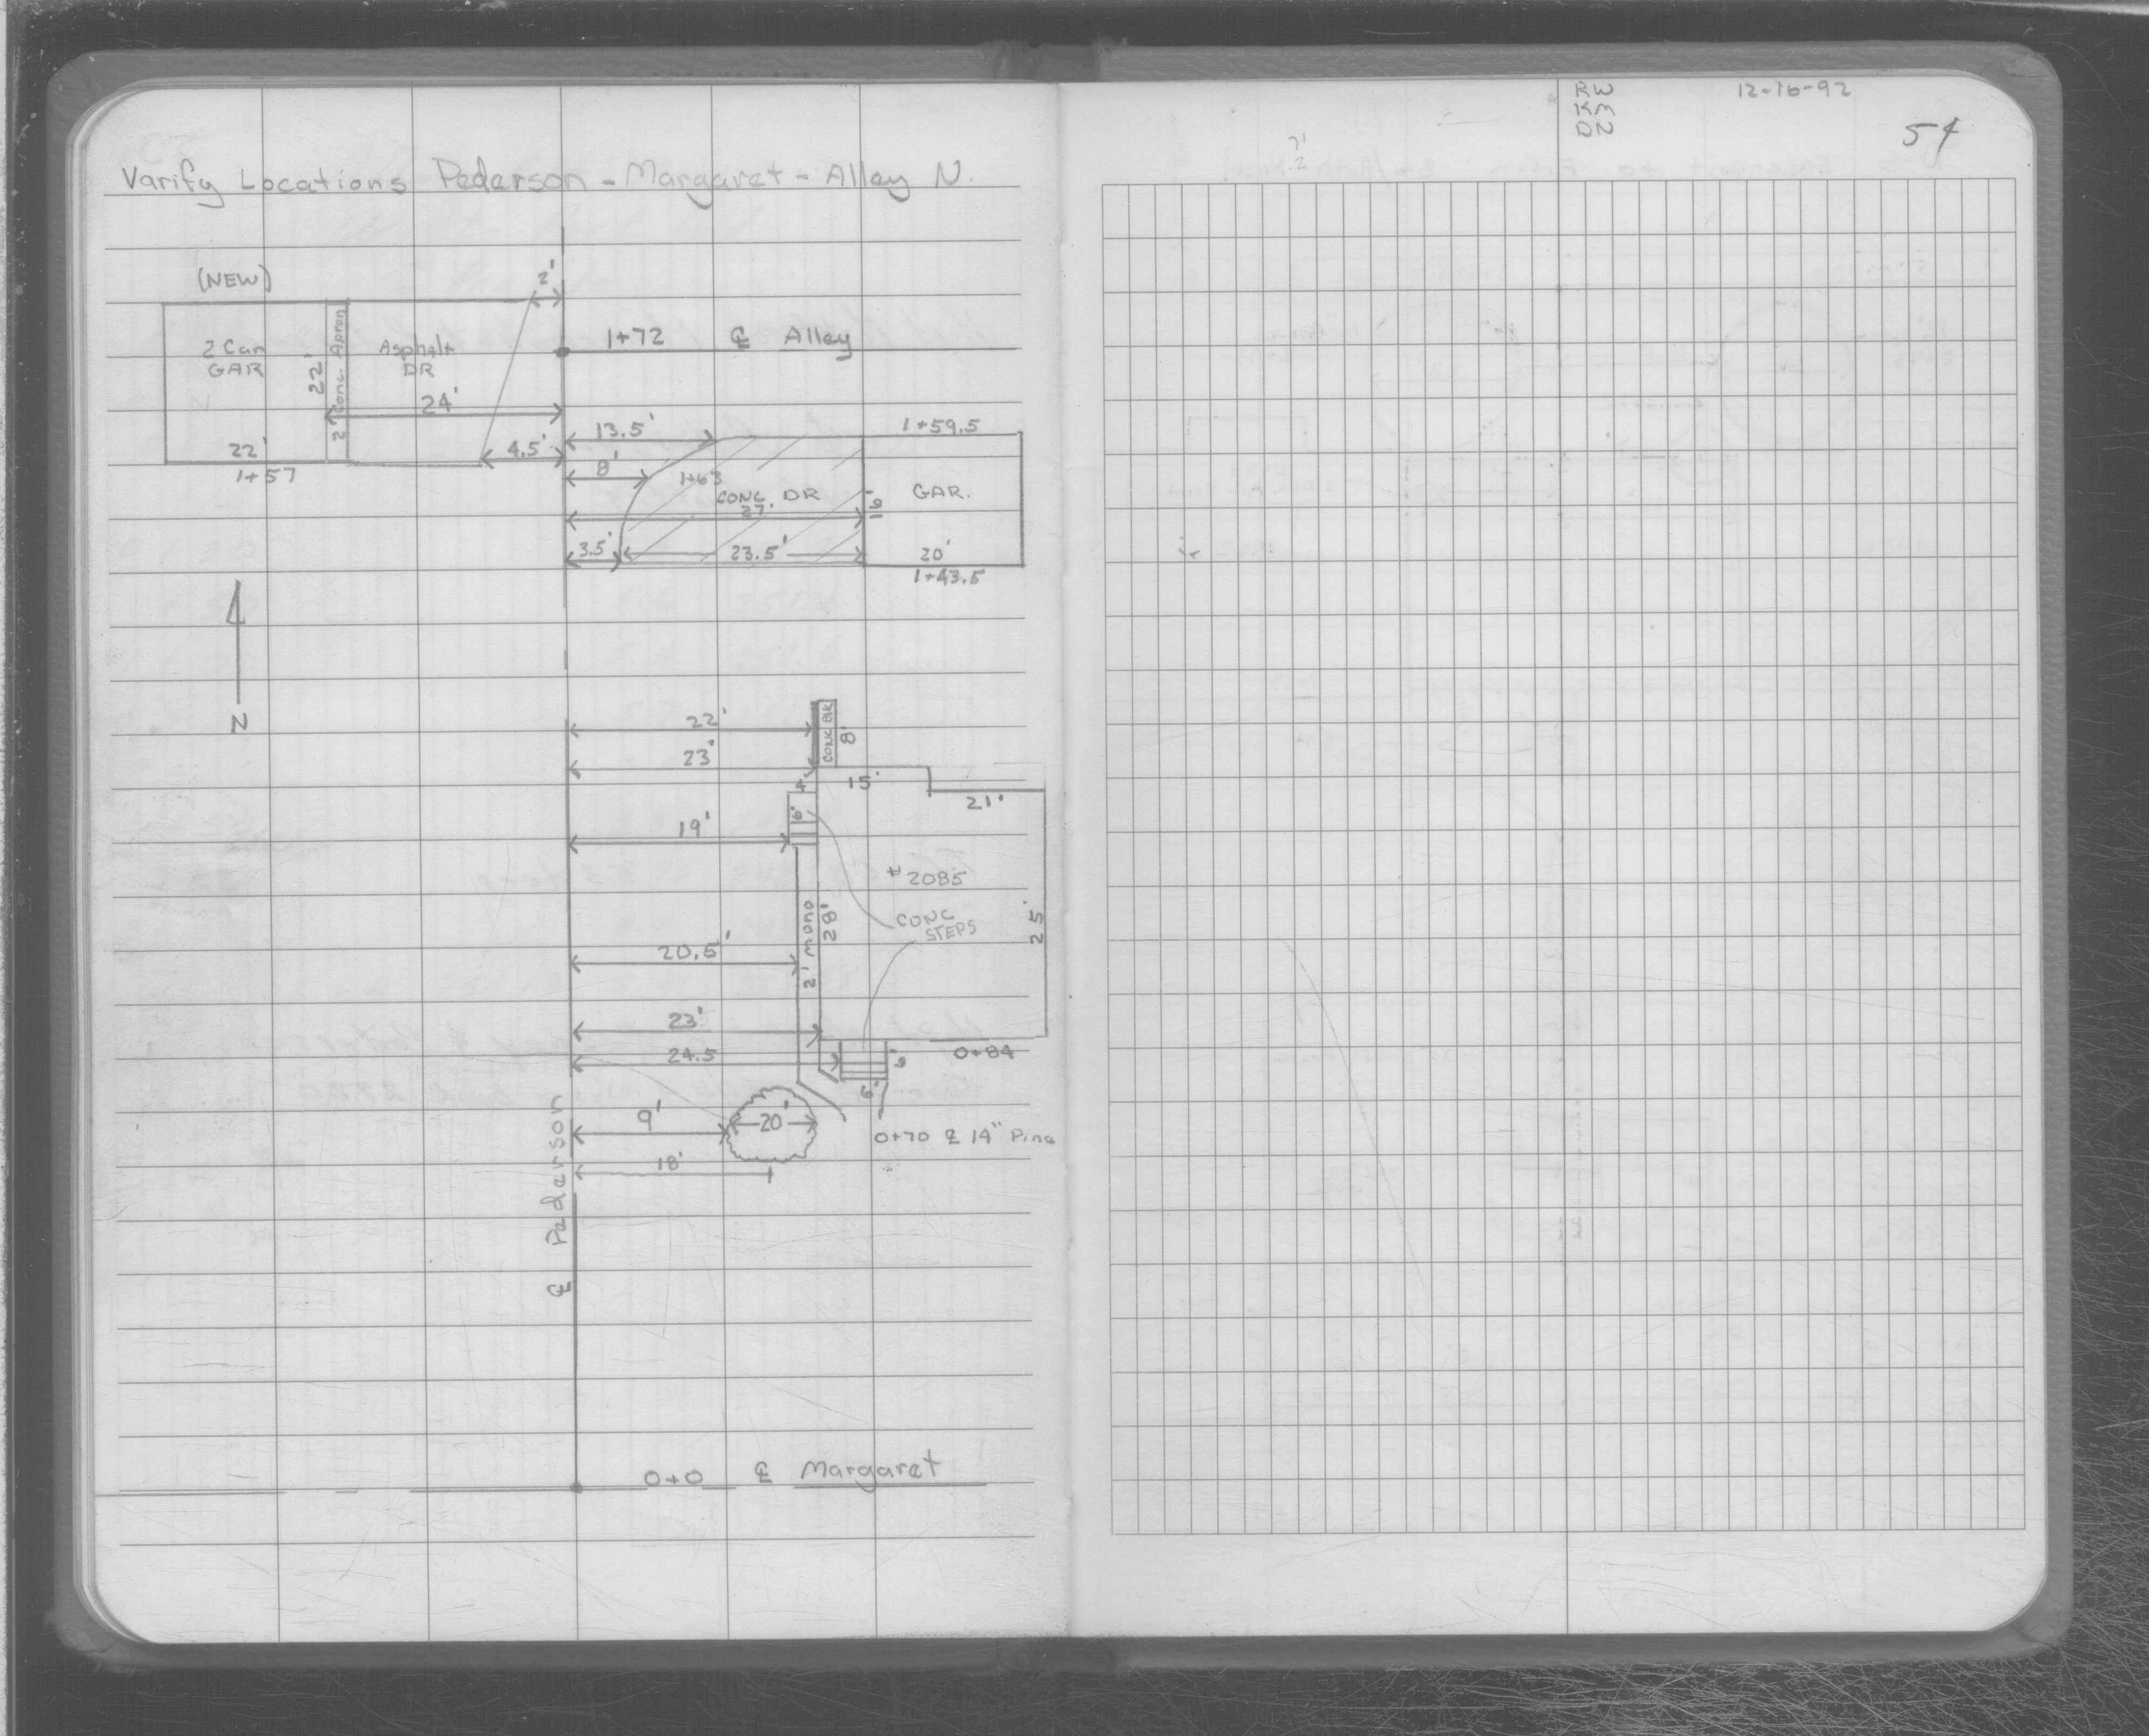 Varify Locations Pederson - Margaret - Alley N.
(NEW)
2'
1+72 ℄ Alley
2 Car
GAR
22'
2' Conc. Apron
Asphalt
DR
24'
13.5'
1+59.5
22'
4.5'
1+57
8'
1+63
CONC. DR
27'
16'
GAR.
3.5'
23.5'
20'
1+43.5
N
22'
CONC BLK
8'
23'
4'
15'
21'
6'
19'
#2085
CONC
STEPS
2' mono
28'
25'
20.5'
23'
24.5
0+84
6'
9'
20'
0+70 ℄ 14" Pine
18'
℄ Pederson
0+0 ℄ Margaret
RW
KM
DN
12-16-92
54